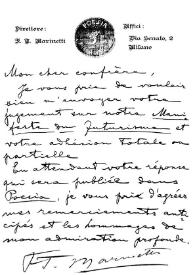 Direttore:
F. T. Marinetti
POESIA
Uffici:
Via Senato, 2
Milano
Mon cher confrère,
Je vous prie de vouloir
bien m'envoyer votre
jugement sur notre Mani-
feste du Futurisme et
votre adhésion totale ou
partielle
En attendant votre réponse
qui sera publiée dans
Poesia, je vous prie d'agréer
mes remerciements anti-
cipés et les hommages de
mon admiration profonde.
F. T. Marinetti